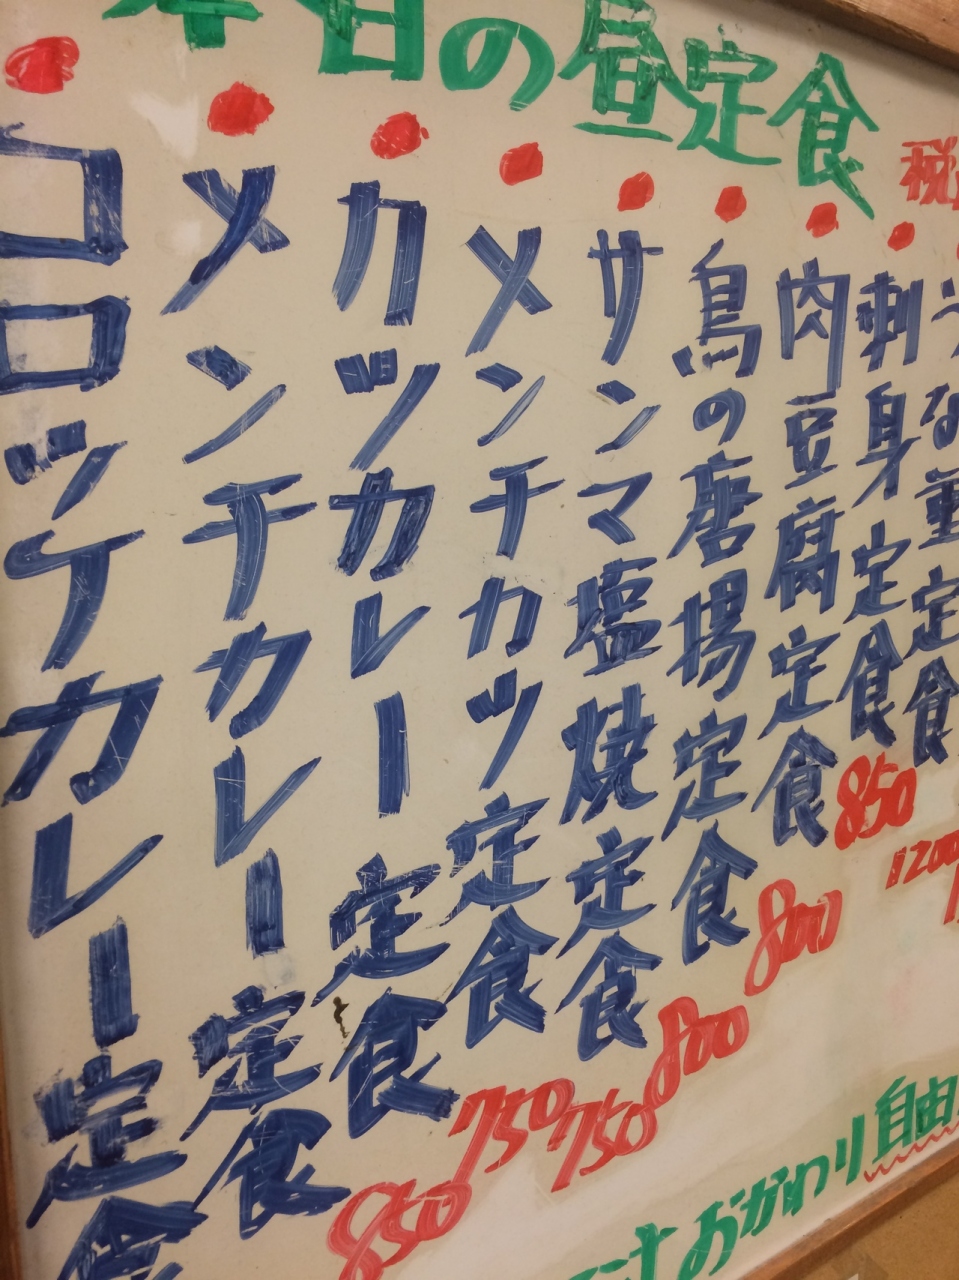 本日の昼定食
うな重定食
刺身定食 850
肉豆腐定食 800
鳥の唐揚定食 800
サンマ塩焼定食 750
メンチカツ定食 750
カツカレー定食 850
メンチカレー定食
コロッケカレー定食
1200
おかわり自由